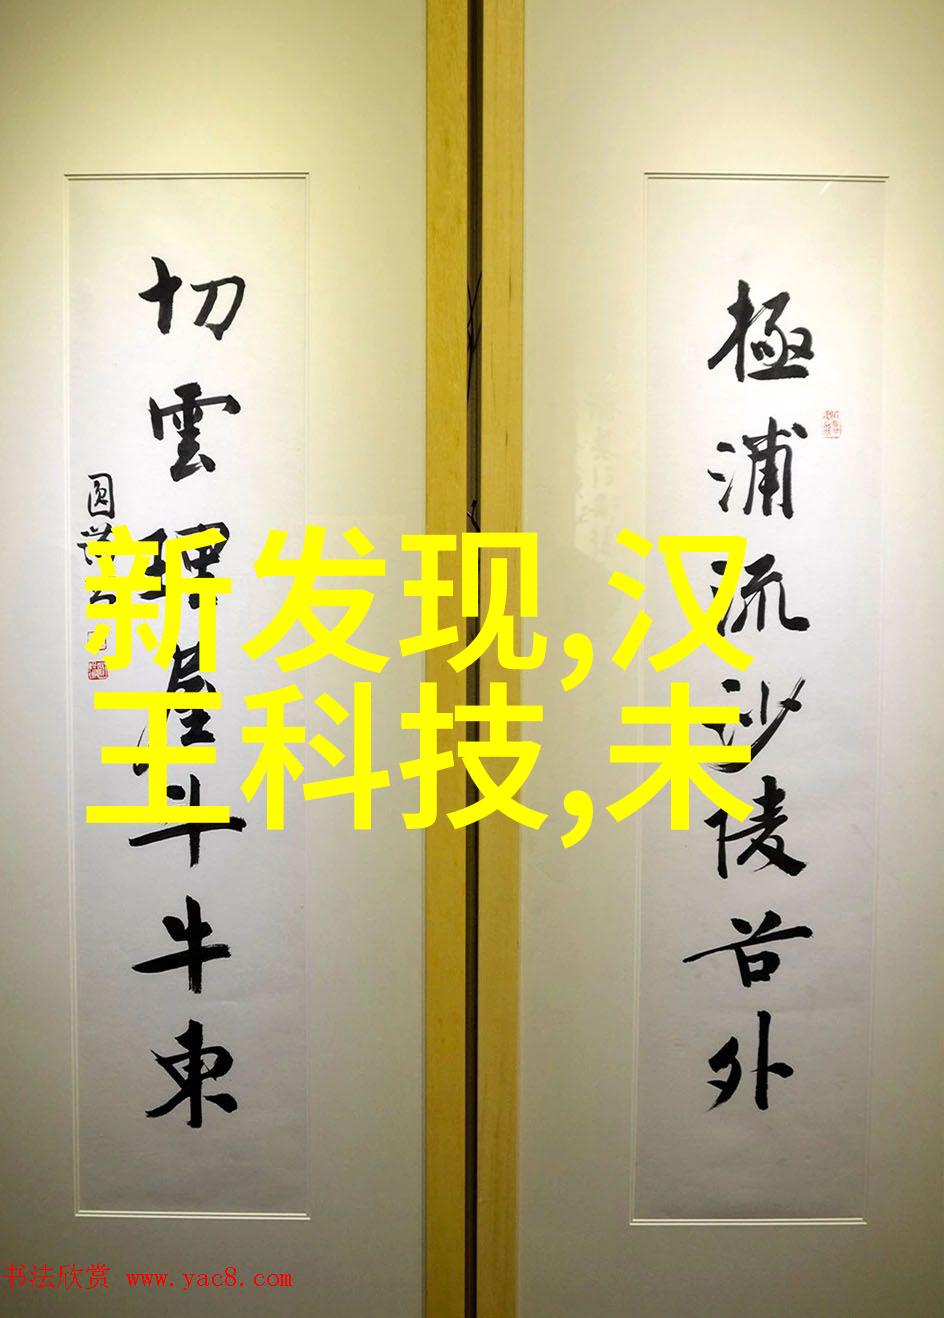 極浦流沙陵谷外
切雲斗牛東
圓
新发现,汉
王科技,未
书法欣赏 www.yac8.com